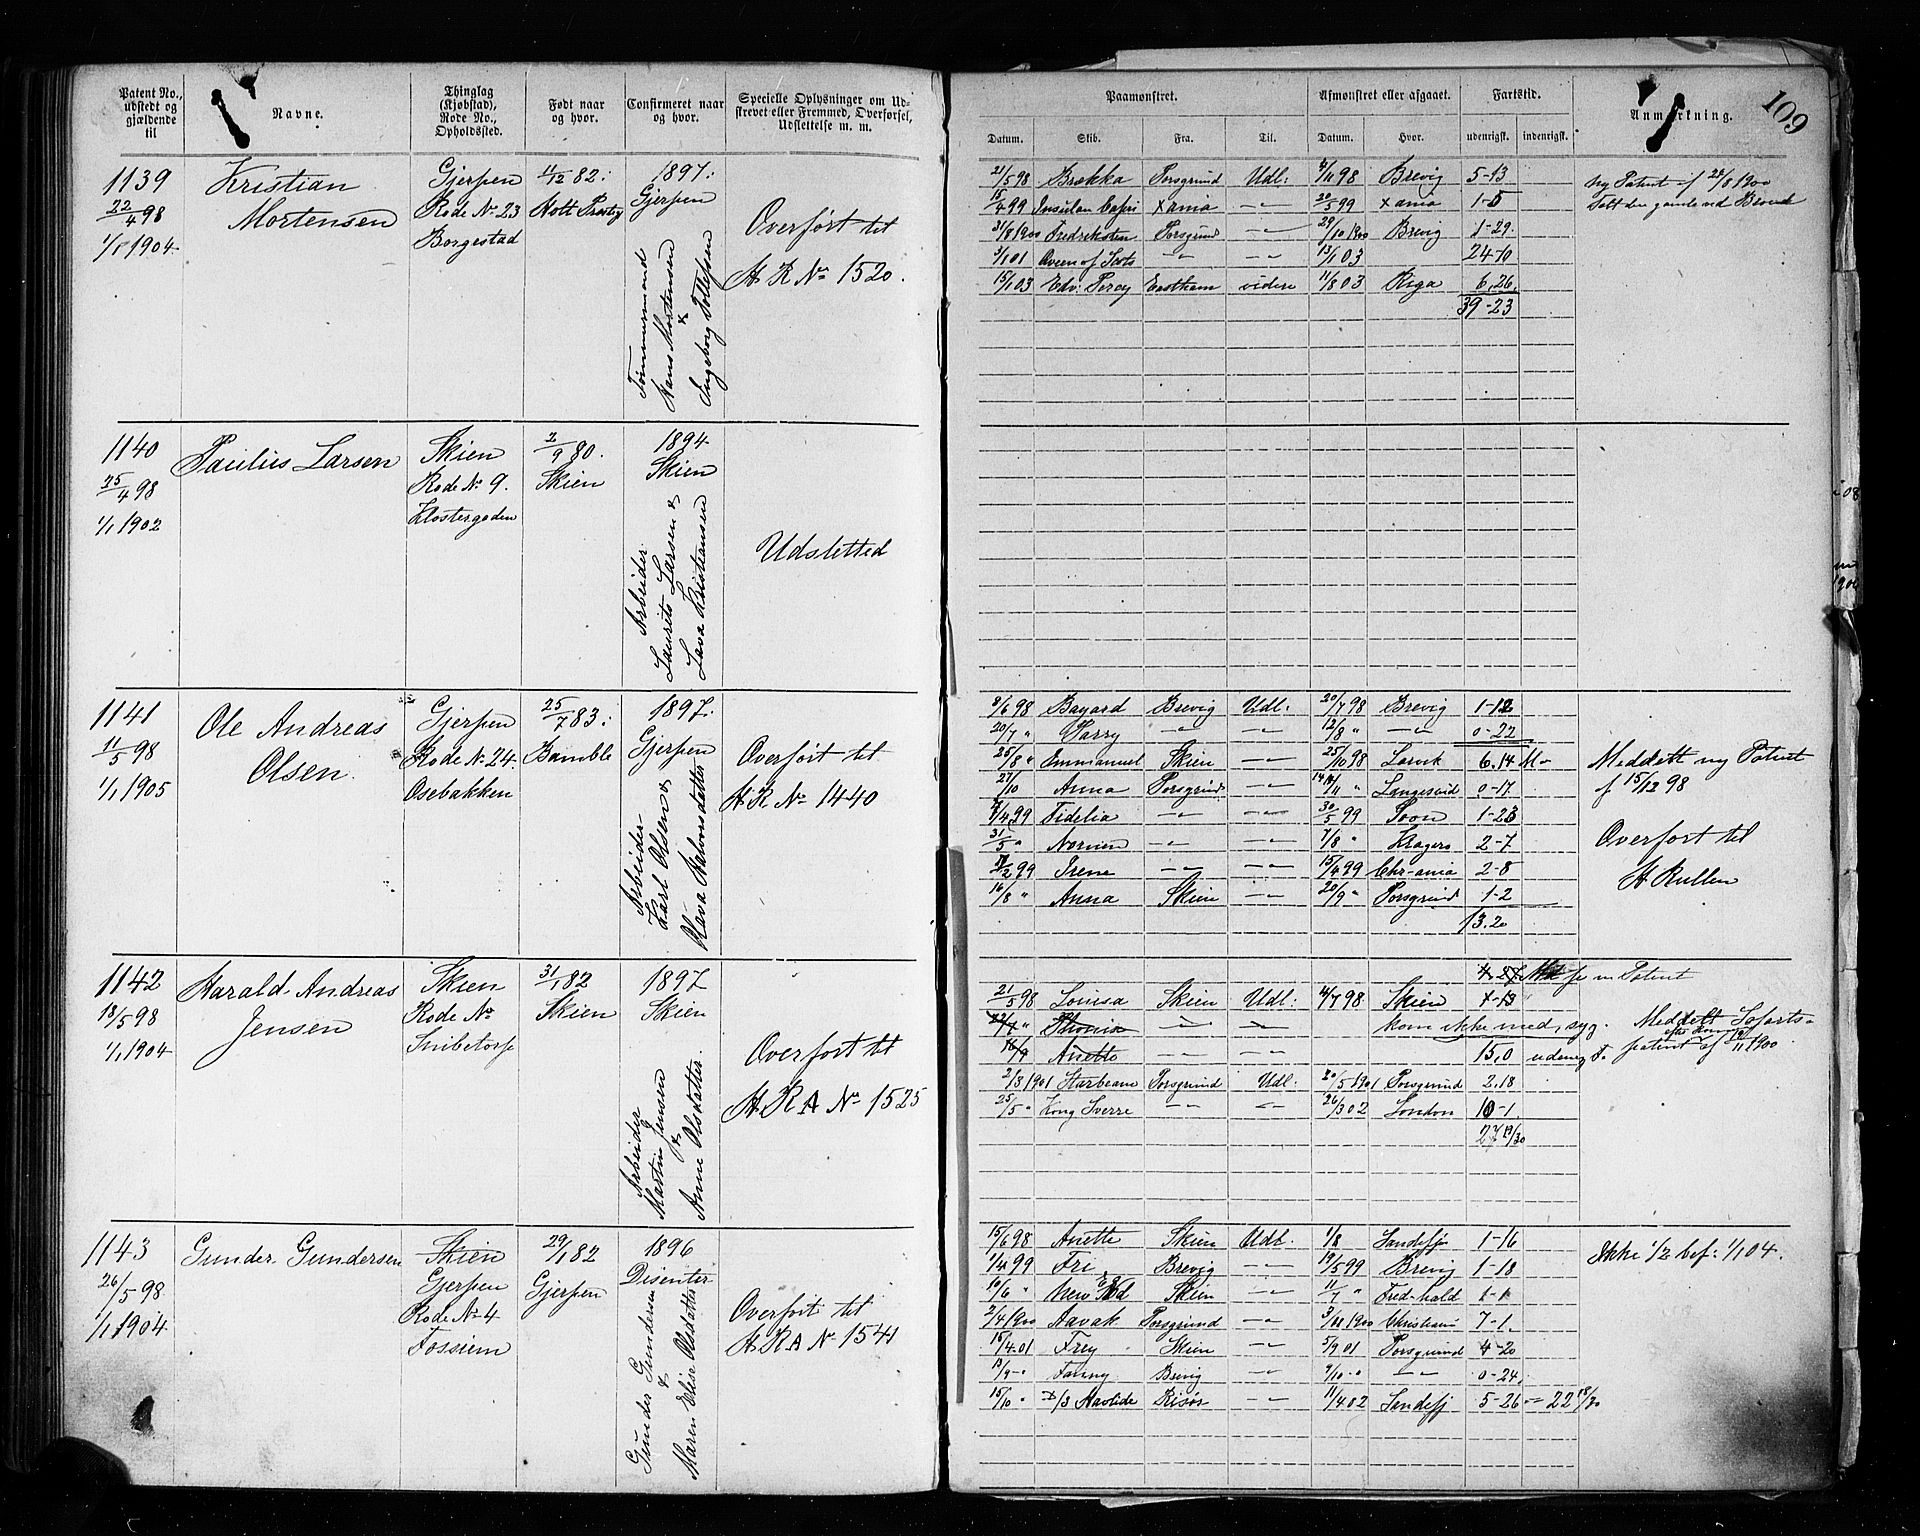 109
Patent No., udstedt og gjældende til
Navne.
Thinglag (Kjøbstad), Rode No., Opholdssted.
Født naar og hvor.
Confirmeret naar og hvor.
Specielle Oplysninger om Udstrevet eller Fremmed, Overførsel, Udslettelse m. m.
Paamønstret.
Afmønstret eller afgaaet.
Fartstid.
Anmærkning.
Datum. Skib. Fra. Til. Datum. Hvor. udenrigst. indenrigst.
1139
22/4 98
1/1 1904
Kristian
Mortensen
Gjerpen
Rode No 23
Borgestad
82.
Holt
1897.
Gjerpen
Tømmermand
Hans Mortensen
&
Ingeborg Tollefsen
Overført til
H R No 1520.
21/5 98 Brekka Porsgrund Udl: 98 Brevig 5-13
15/4 99 Insulan Capri Xania -"- 20/5 99 Xania 1-5
31/8 1900 Fredriksten Porsgrund -"- 29/10 1900 Brevig 1-29.
3/1 01 Queen of Scots -"- -"- 13/1 03 24-10
15/1 03 Edv: Percy Eastham videre 11/8 03 Riga 6,26,
39-23
Ny Patent af 28/8 1900
1140
25/4 98
1/1 1902
Paulus Larsen
Skien
Rode No 9.
Klostergaden
2/9 80.
Skien
1894
Skien
Arbeider
Laurits Larsen &
Lava Kristiansen
Udsletted
1141
11/5 98
1/1 1905
Ole Andreas
Olsen
Gjerpen
Rode No 24.
Osebakken
25/7 83.
Bamble
1897.
Gjerpen
Arbeider
Karl Olsen &
Olava Halvorsdatter
Overført til
H R No 1440
8/6 98 Bayard Brevig Udl: 20/7 98 Brevig 1-12
20/7 " Harry -"- -"- 12/8 " -"- 0-22
25/8 " Immanuel Skien -"- 25/10 98 Larvik 6.14
27/10 Anna Porsgrund -"- Langesund 0-17
4/4 99 Fidelia -"- -"- 30/5 99 Soon 1-23
31/5 " Nornen -"- -"- 7/8 " Kragerø 2-7
99 Irene -"- -"- 15/4 99 Chr-ania 2-8
16/8 " Anna Skien -"- 20/9 " Porsgrund 1-2
13.20
Meddelt ny Patent
af 15/12 98
Overført til
H Rullen
1142
18/5 98
1/1 1904
Harald Andreas
Jensen
Skien
Rode No
Snibetorp
31/1 82
Skien
1897
Skien
Arbeider
Martin Jensen
&
Anne Olsdatter
Overført til
H R A No 1525
21/5 98 Louisa Skien Udl: 4/7 98 Skien 1-13
kom ikke med, syg.
Anette -"- 15,0 udenrigs F.
2/3 1901 Starbeam Porsgrund Udl. 20/5 1901 Porsgrund 2.18
25/5 " Kong Sverre -"- -"- 26/3 02 London 10-1
27 19/30
Patent
Meddelt Søfarts-
patent af 1900
1143
26/5 98
1/1 1904
Gunder Gundersen
Skien
Gjerpen
Rode No 4
Fossum
29/1 82
Gjerpen
1896
Disenter
Gunder Gundersen
&
Maren Elise Olsdatter
Overført til
H R A No 1541
15/6 98 Anette Skien Udl. 1/8 Sandefj 1-16
1/4 99 Fri Brevig -"- 19/5 99 Brevig 1-18
10/6 " New Skien -"- 11/7 " Fred-hald 1-1
2/4 1900 Aavak Porsgrund -"- 1900 Christiania 7-1.
15/4 01 Frey Skien -"- 5/9 01 Porsgrund 4-20
Fanny Brevig -"- -"- 0-24,
15/10 " Risør -"- 11/4 02 Sandefj 5-26 = 22 18/30
Ikke 1/2 bef: 1/1 04.